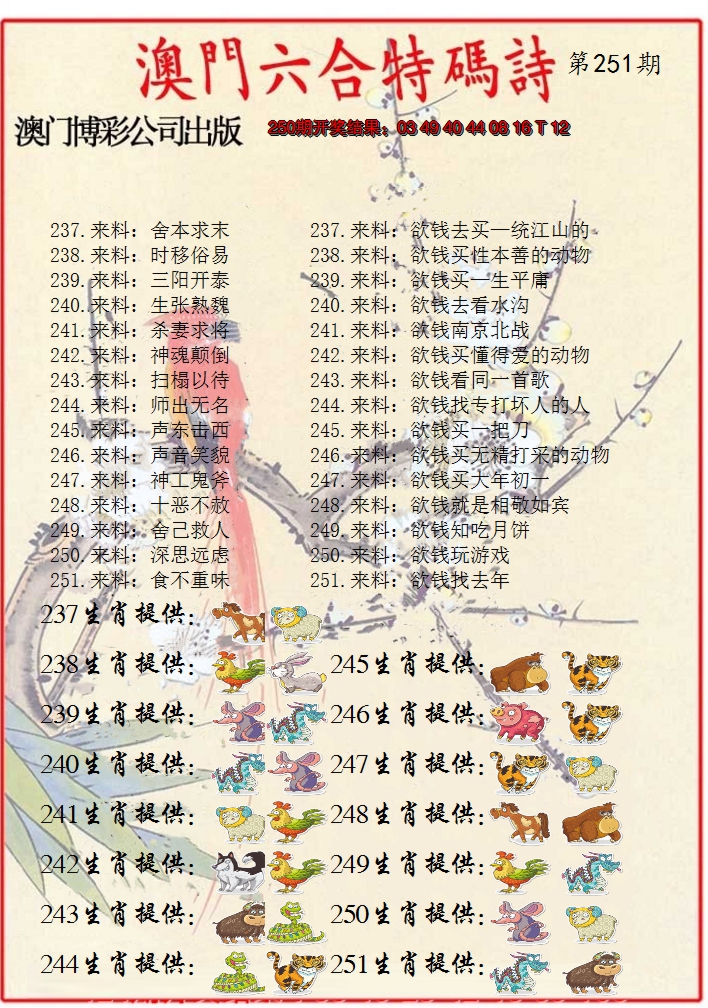 澳門六合特碼詩 第251期
澳门博彩公司出版 250期开奖结果：03 49 40 44 08 16 T 12
237.来料：舍本求末 237.来料：欲钱去买一统江山的
238.来料：时移俗易 238.来料：欲钱买性本善的动物
239.来料：三阳开泰 239.来料：欲钱买一生平庸
240.来料：生张熟魏 240.来料：欲钱去看水沟
241.来料：杀妻求将 241.来料：欲钱南京北战
242.来料：神魂颠倒 242.来料：欲钱买懂得爱的动物
243.来料：扫榻以待 243.来料：欲钱看同一首歌
244.来料：师出无名 244.来料：欲钱找专打坏人的人
245.来料：声东击西 245.来料：欲钱买一把刀
246.来料：声音笑貌 246.来料：欲钱买无精打采的动物
247.来料：神工鬼斧 247.来料：欲钱买大年初一
248.来料：十恶不赦 248.来料：欲钱就是相敬如宾
249.来料：舍己救人 249.来料：欲钱知吃月饼
250.来料：深思远虑 250.来料：欲钱玩游戏
251.来料：食不重味 251.来料：欲钱找去年
237生肖提供：
238生肖提供： 245生肖提供：
239生肖提供： 246生肖提供：
240生肖提供： 247生肖提供：
241生肖提供： 248生肖提供：
242生肖提供： 249生肖提供：
243生肖提供： 250生肖提供：
244生肖提供： 251生肖提供：